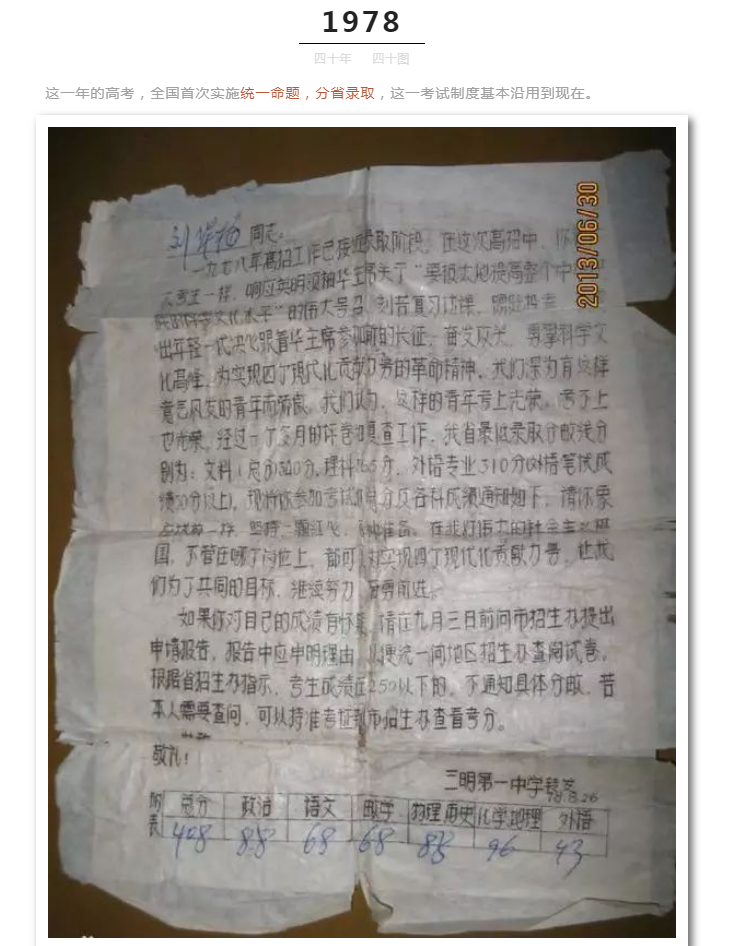 1978
四十年 四十图
这一年的高考，全国首次实施统一命题，分省录取，这一考试制度基本沿用到现在。
2013/06/30
刘 同志：
一九七八年高招工作已接近录取阶段，在这次高招中，你
一样，响应英明领袖华主席关于“要极大地提高整个中
的科学文化水平”的伟大号召，刻苦复习功课，
出年轻一代决心跟着华主席参加新的长征，奋发攻关，勇攀科学文
化高峰，为实现四个现代化贡献力量的革命精神。我们深为有这样
意志风发的青年而骄傲。我们认为，这样的青年考上光荣，考不上
也光荣。经过一个多月的评卷和复查工作，我省最低录取分数线分
别为：文科（总分）300分，理科 65分，外语专业310分（外语笔试成
绩50分以上）。现将你参加考试的总分及各科成绩通知如下，请你象
一样，坚持一颗红心， 准备，在我们伟大的社会主义祖
国，不管在哪个岗位上，都可以为实现四个现代化贡献力量，让我
们为了共同的目标，继续努力，奋勇前进。
如果你对自己的成绩有怀疑，请在九月三日前向市招生办提出
申请报告，报告中应申明理由，以便统一向地区招生办查阅试卷。
根据省招生办指示，考生成绩在250以下的，不通知具体分数，若
本人需要查问，可以持准考证到市招生办查看考分。
此致
敬礼！
三明第一中学转发
78.8.26
附表 总分 政治 语文 数学 物理历史 化学地理 外语
408 88 68 68 88 96 43